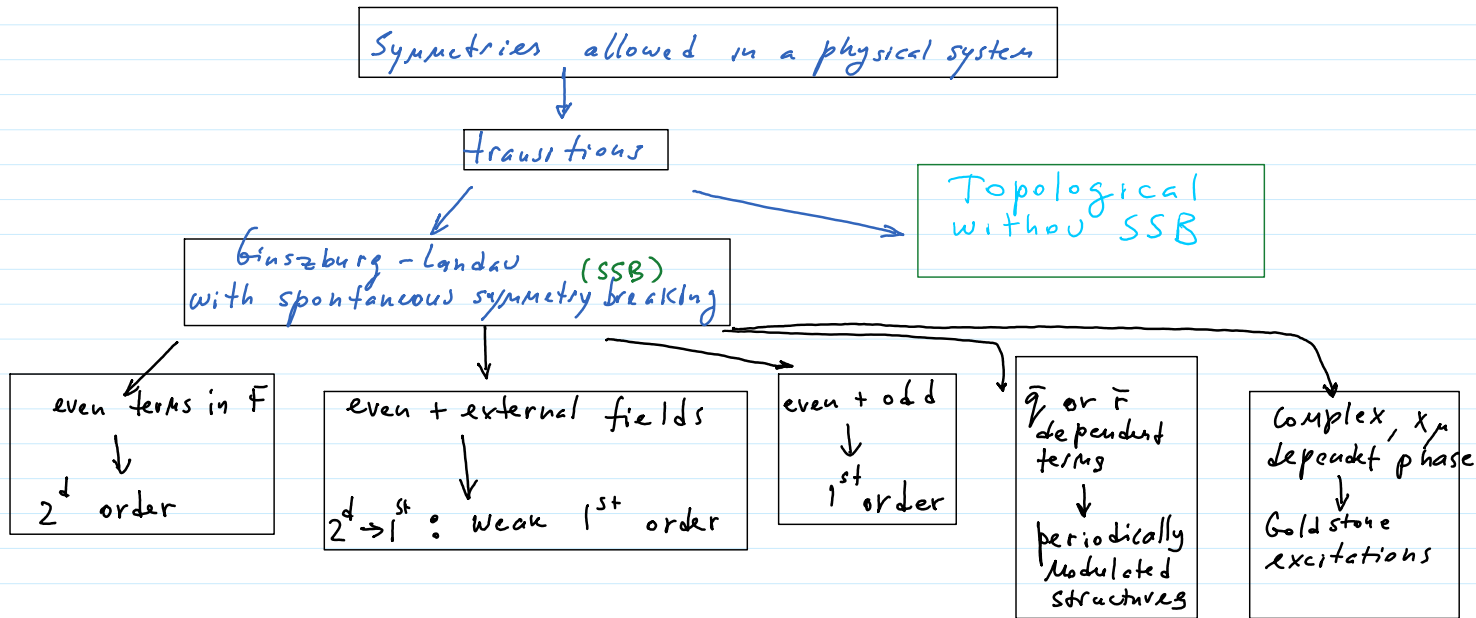 Symmetries allowed in a physical system
transitions
Topological
withou SSB
Ginszburg - Landau
(SSB)
with spontaneous symmetry breaking
even terms in F
2d order
even + external fields
2d → 1st : weak 1st order
even + odd
1st order
q̄ or r̄
dependent
terms
periodically
modulated
structures
Complex, xμ
dependet phase
Goldstone
excitations